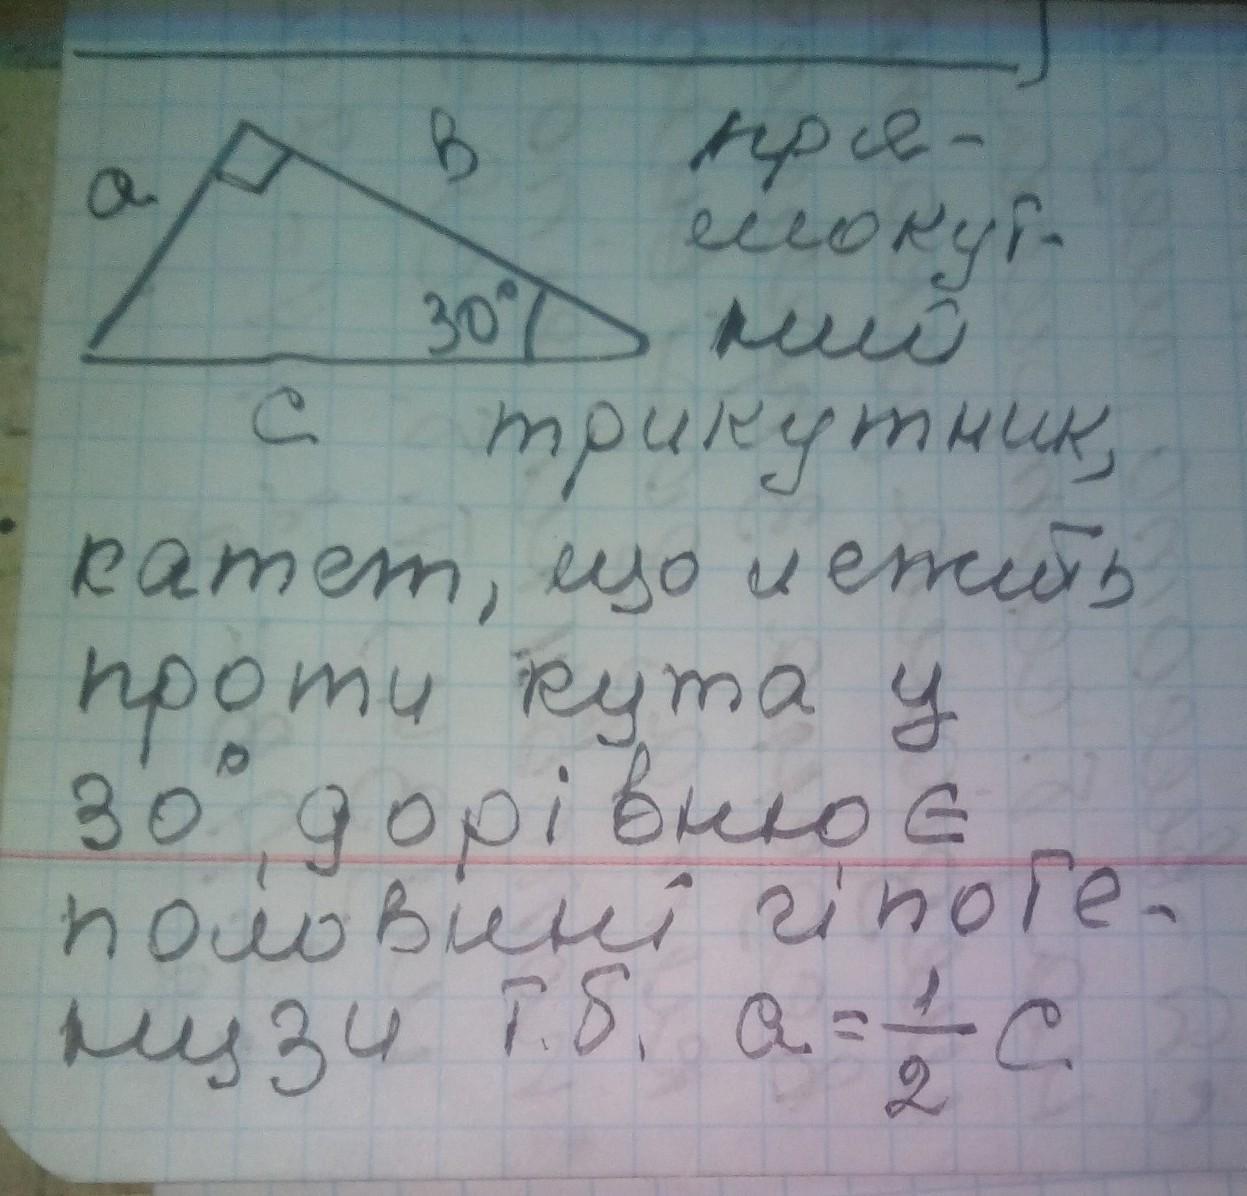 a
в
30°
с
пря-
мокут-
ний
трикутник,
катет, що лежить
проти кута у
30°, дорівнює
половині гіпоте-
нузи т.б. a = 1/2 c